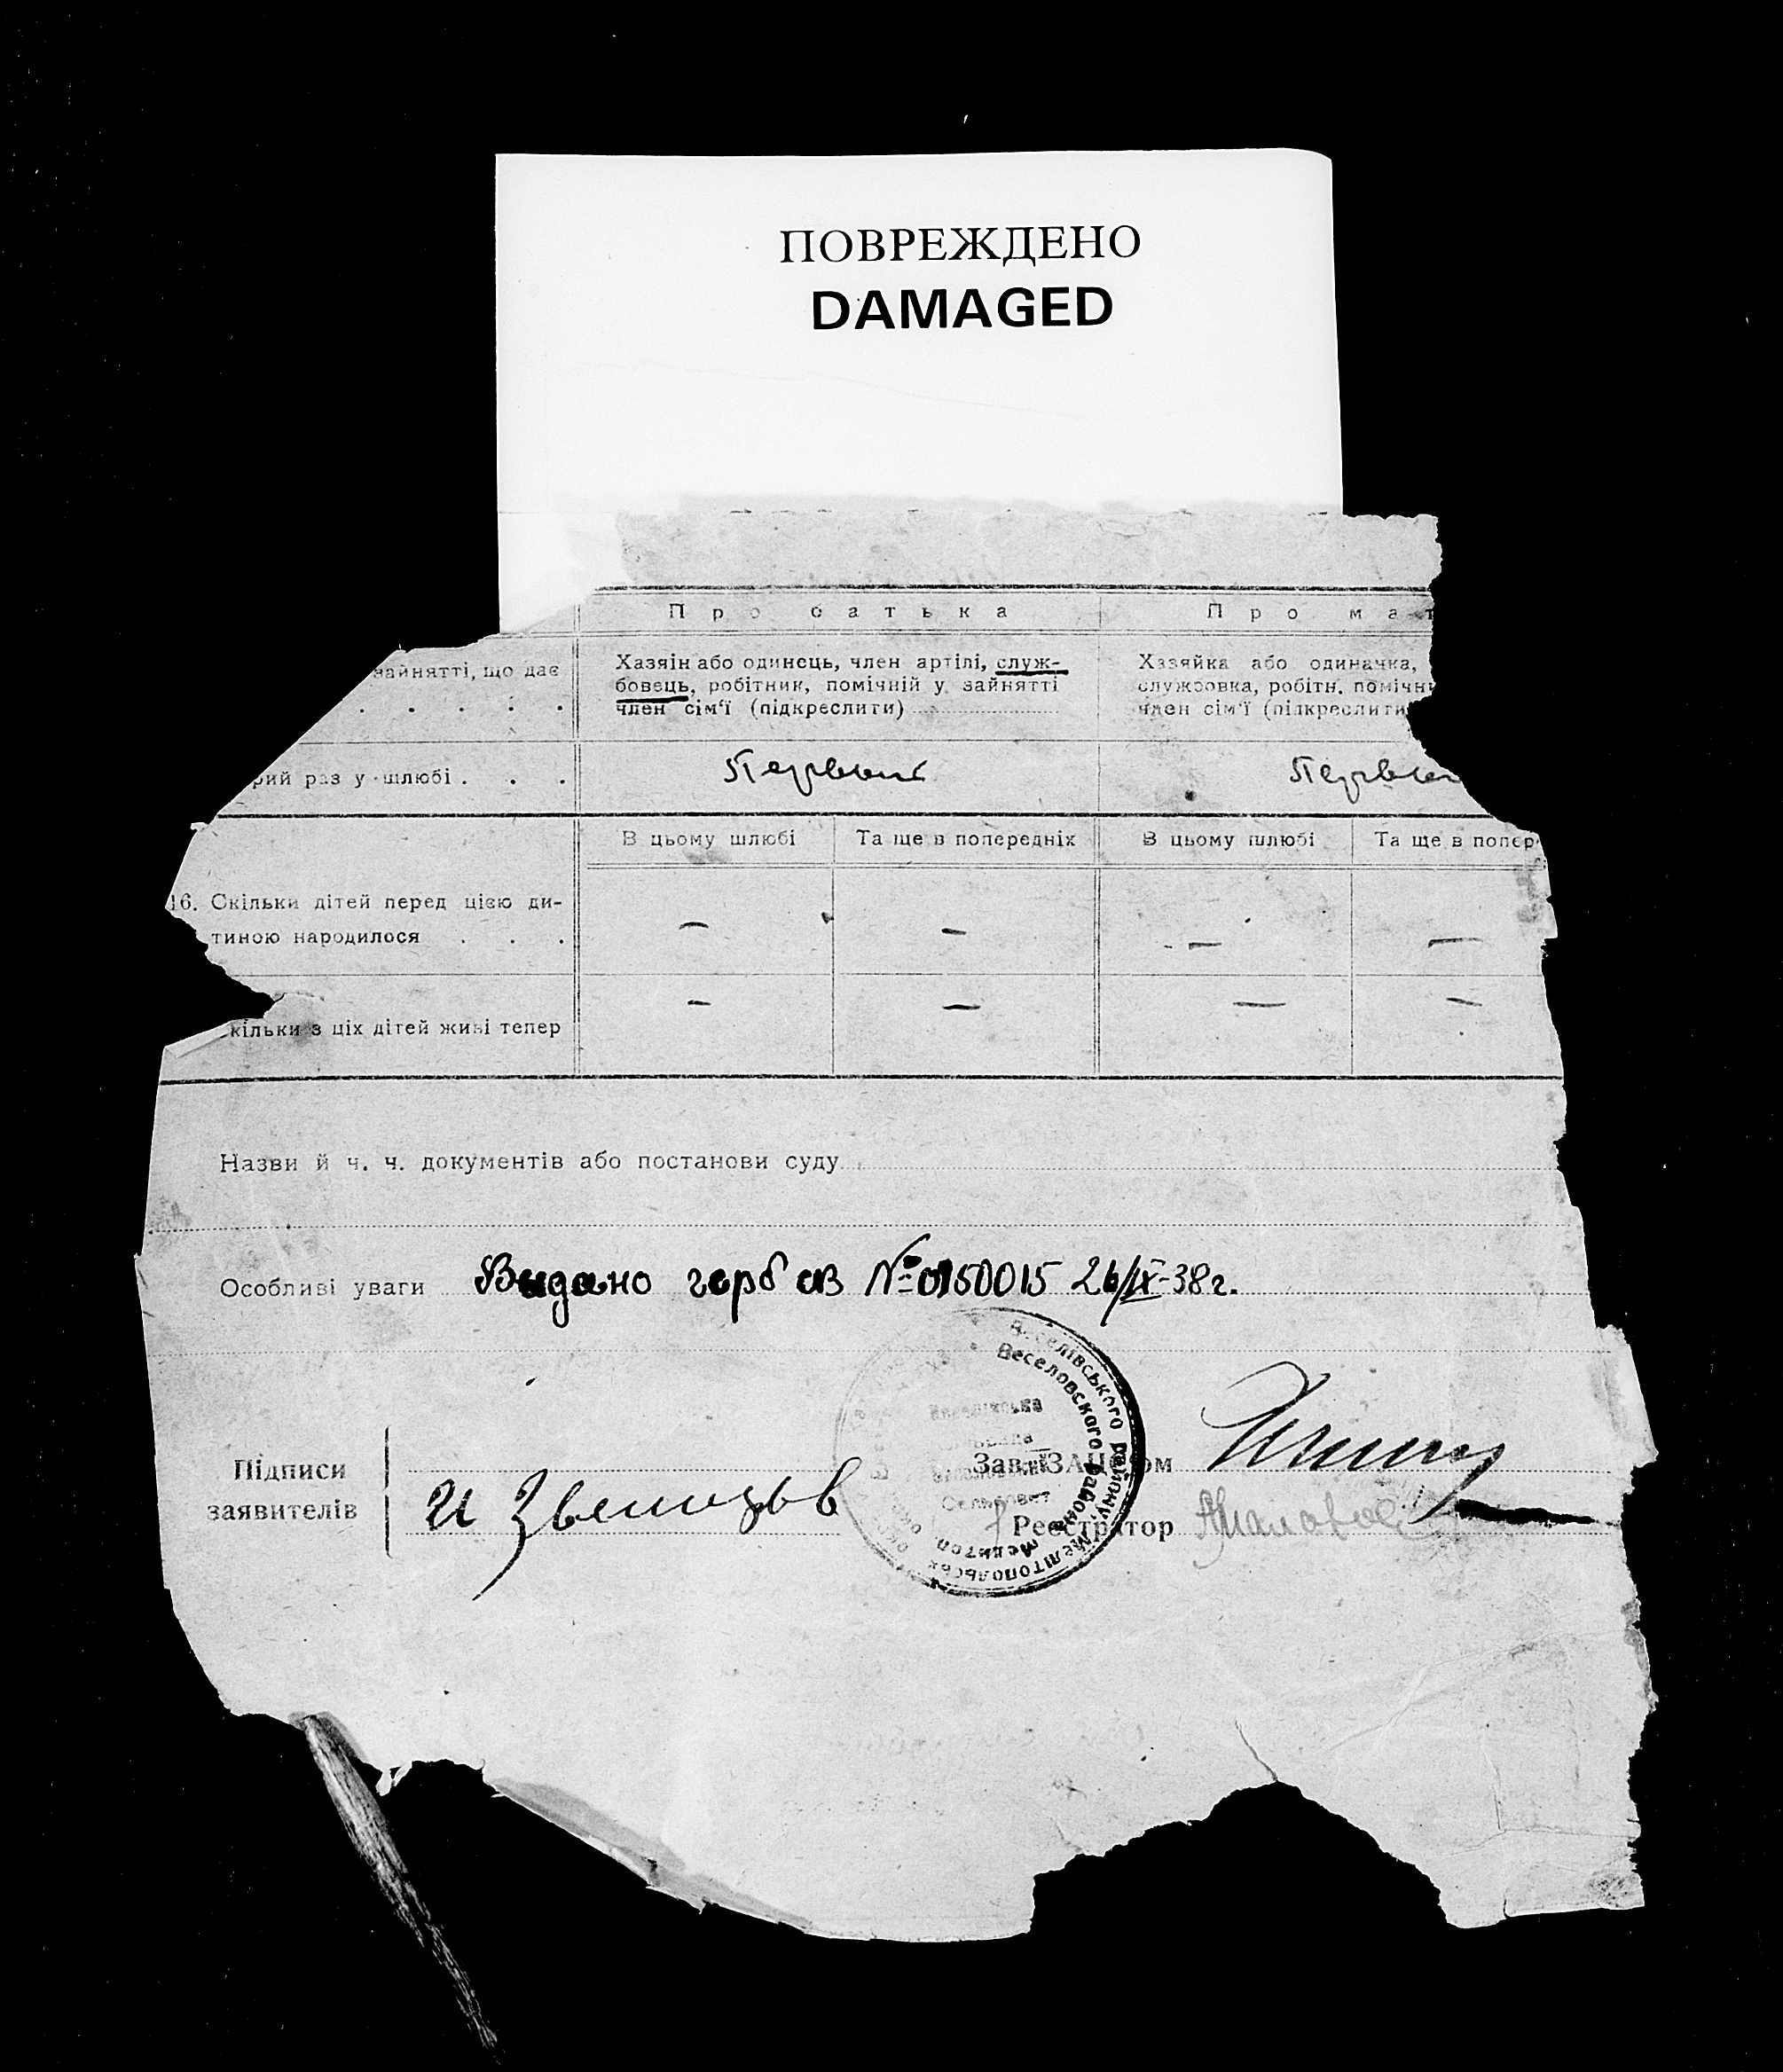 ПОВРЕЖДЕНО
DAMAGED
Про батька Про мат
зайнятті, що дає
. . . . .
Хазяїн або одинець, член артілі, служ-
бовець, робітник, помічній у зайнятті
член сім'ї (підкреслити)
Хазяйка або одиначка,
службовка, робітн. помічн
член сім'ї (підкреслити
рий раз у шлюбі . . .
Первый Первы
В цьому шлюбі Та ще в попередніх В цьому шлюбі Та ще в попер
16. Скільки дітей перед цією ди-
тиною народилося . . .
— — — —
кільки з ціх дітей живі тепер
— — — —
Назви й ч. ч. документів або постанови суду
Особливі уваги Видано герб св № 0150015 26/IX-38 г.
Веселівського району Мелітопольськ
Веселовского района Мелитоп
Підписи
заявителів
Зав. ЗАГ'сом
Реєстратор